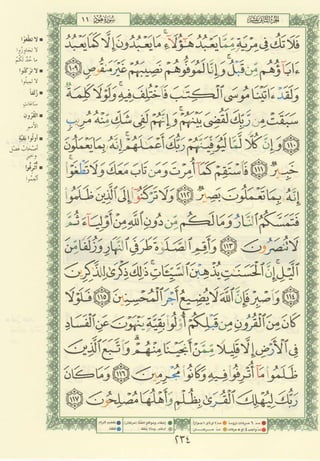 سورة هود ١١
فَلَا تَكُ فِي مِرْيَةٍ مِّمَّا يَعْبُدُ هَٰٓؤُلَآءِ ۚ مَا يَعْبُدُونَ إِلَّا كَمَا يَعْبُدُ
ءَابَآؤُهُم مِّن قَبْلُ ۚ وَإِنَّا لَمُوَفُّوهُمْ نَصِيبَهُمْ غَيْرَ مَنقُوصٍ ١٠٩
وَلَقَدْ ءَاتَيْنَا مُوسَى ٱلْكِتَٰبَ فَٱخْتُلِفَ فِيهِ ۚ وَلَوْلَا كَلِمَةٌ
سَبَقَتْ مِن رَّبِّكَ لَقُضِيَ بَيْنَهُمْ ۚ وَإِنَّهُمْ لَفِي شَكٍّ مِّنْهُ مُرِيبٍ
١١٠ وَإِنَّ كُلًّا لَّمَّا لَيُوَفِّيَنَّهُمْ رَبُّكَ أَعْمَٰلَهُمْ ۚ إِنَّهُۥ بِمَا يَعْمَلُونَ
خَبِيرٌ ١١١ فَٱسْتَقِمْ كَمَآ أُمِرْتَ وَمَن تَابَ مَعَكَ وَلَا تَطْغَوْا۟ ۚ
إِنَّهُۥ بِمَا تَعْمَلُونَ بَصِيرٌ ١١٢ وَلَا تَرْكَنُوٓا۟ إِلَى ٱلَّذِينَ ظَلَمُوا۟
فَتَمَسَّكُمُ ٱلنَّارُ وَمَا لَكُم مِّن دُونِ ٱللَّهِ مِنْ أَوْلِيَآءَ ثُمَّ
لَا تُنصَرُونَ ١١٣ وَأَقِمِ ٱلصَّلَوٰةَ طَرَفَيِ ٱلنَّهَارِ وَزُلَفًا مِّنَ
ٱلَّيْلِ ۚ إِنَّ ٱلْحَسَنَٰتِ يُذْهِبْنَ ٱلسَّيِّـَٔاتِ ۚ ذَٰلِكَ ذِكْرَىٰ لِلذَّٰكِرِينَ
١١٤ وَٱصْبِرْ فَإِنَّ ٱللَّهَ لَا يُضِيعُ أَجْرَ ٱلْمُحْسِنِينَ ١١٥ فَلَوْلَا
كَانَ مِنَ ٱلْقُرُونِ مِن قَبْلِكُمْ أُو۟لُوا۟ بَقِيَّةٍ يَنْهَوْنَ عَنِ ٱلْفَسَادِ
فِي ٱلْأَرْضِ إِلَّا قَلِيلًا مِّمَّنْ أَنجَيْنَا مِنْهُمْ ۗ وَٱتَّبَعَ ٱلَّذِينَ
ظَلَمُوا۟ مَآ أُتْرِفُوا۟ فِيهِ وَكَانُوا۟ مُجْرِمِينَ ١١٦ وَمَا كَانَ
رَبُّكَ لِيُهْلِكَ ٱلْقُرَىٰ بِظُلْمٍ وَأَهْلُهَا مُصْلِحُونَ ١١٧
٢٣٤